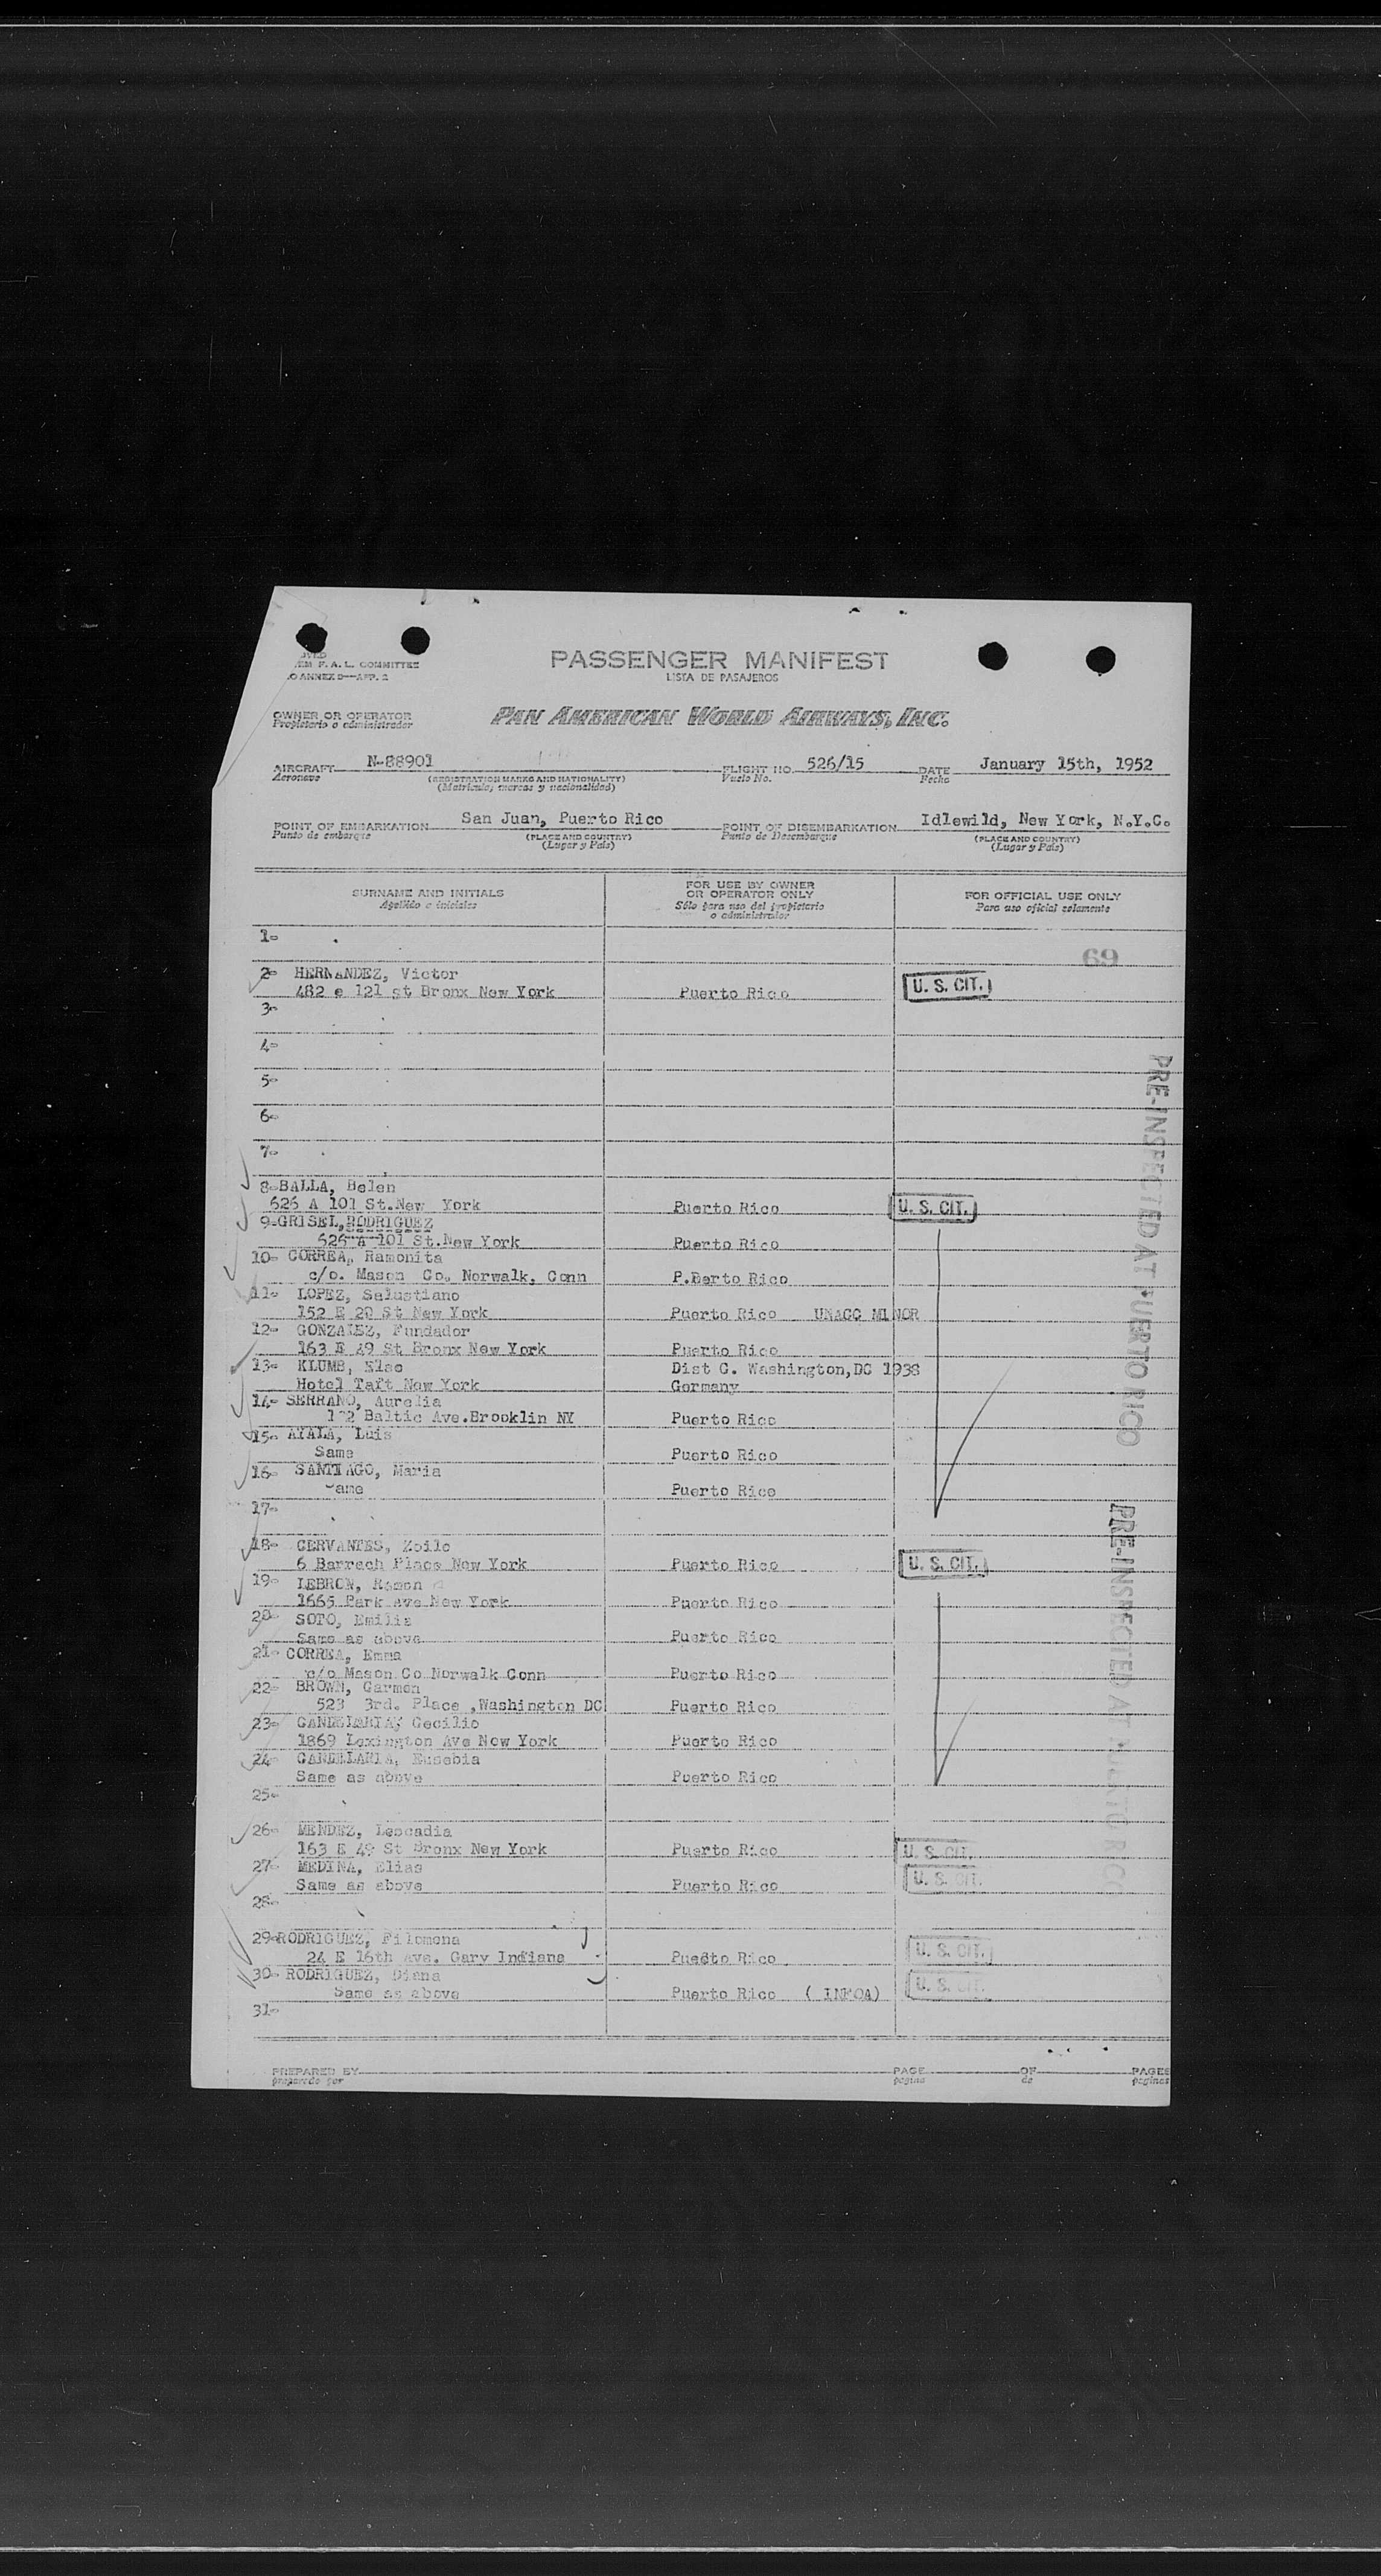 F. A. L. COMMITTEE
ANNEX 9—APP. 2
PASSENGER MANIFEST
LISTA DE PASAJEROS
OWNER OR OPERATOR
Propietario o administrador
PAN AMERICAN WORLD AIRWAYS, INC.
AIRCRAFT N-88901 FLIGHT NO. 526/15 DATE January 15th, 1952
Aeronave (REGISTRATION MARKS AND NATIONALITY) Vuelo No. Fecha
(Matricula, marcas y nacionalidad)
POINT OF EMBARKATION San Juan, Puerto Rico POINT OF DISEMBARKATION Idlewild, New York, N.Y.C.
Punto de embarque (PLACE AND COUNTRY) Punto de Desembarque (PLACE AND COUNTRY)
(Lugar y Pais) (Lugar y Pais)
SURNAME AND INITIALS FOR USE BY OWNER OR OPERATOR ONLY FOR OFFICIAL USE ONLY
Apellido e iniciales Sólo para uso del propietario o administrador Para uso oficial solamente
1-
69
2- HERNANDEZ, Victor
482 e 121 st Bronx New York Puerto Rico U. S. CIT.
3-
4-
5-
6-
7-
8-BALLA, Belen
626 A 101 St.New York Puerto Rico U. S. CIT.
9-GRISEL,RODRIGUEZ
626 A 101 St.New York Puerto Rico
10- CORREA, Ramonita
c/o. Mason Co. Norwalk, Conn P.Berto Rico
11- LOPEZ, Salustiano
152 E 20 St New York Puerto Rico UNACC MINOR
12- GONZALEZ, Fundador
163 E 49 St Bronx New York Puerto Rico
13- KLUMB, Else Dist C. Washington,DC 1938
Hotel Taft New York Germany
14- SERRANO, Aurelia
Baltic Ave.Brooklin NY Puerto Rico
15- AYALA, Luis
Same Puerto Rico
16- SANTIAGO, Maria
Same Puerto Rico
17-
18- CERVANTES, Zoilo
6 Barrech Place New York Puerto Rico U. S. CIT.
19- LEBRON, Ramon
1665 Park Ave New York Puerto Rico
20- SOTO, Emilia
Same as above Puerto Rico
21- CORREA, Emma
c/o Mason Co Norwalk Conn Puerto Rico
22- BROWN, Carmen
523 3rd. Place ,Washington DC Puerto Rico
23- CANDELARIA, Cecilio
1869 Lexington Ave New York Puerto Rico
24- CANDELARIA, Eusebia
Same as above Puerto Rico
25-
26- MENDEZ, Leocadia
163 E 49 St Bronx New York Puerto Rico U. S. CIT.
27- MEDINA, Elias
Same as above Puerto Rico U. S. CIT.
28-
29-RODRIGUEZ, Filomena
24 E 16th Ave. Gary Indiana Puedto Rico U. S. CIT.
30- RODRIGUEZ, Diana
Same as above Puerto Rico ( INFOA) U. S. CIT.
31-
PRE-INSPECTED AT PUERTO RICO
PRE-INSPECTED AT PUERTO RICO
PREPARED BY PAGE OF PAGES
preparado por pagina de paginas